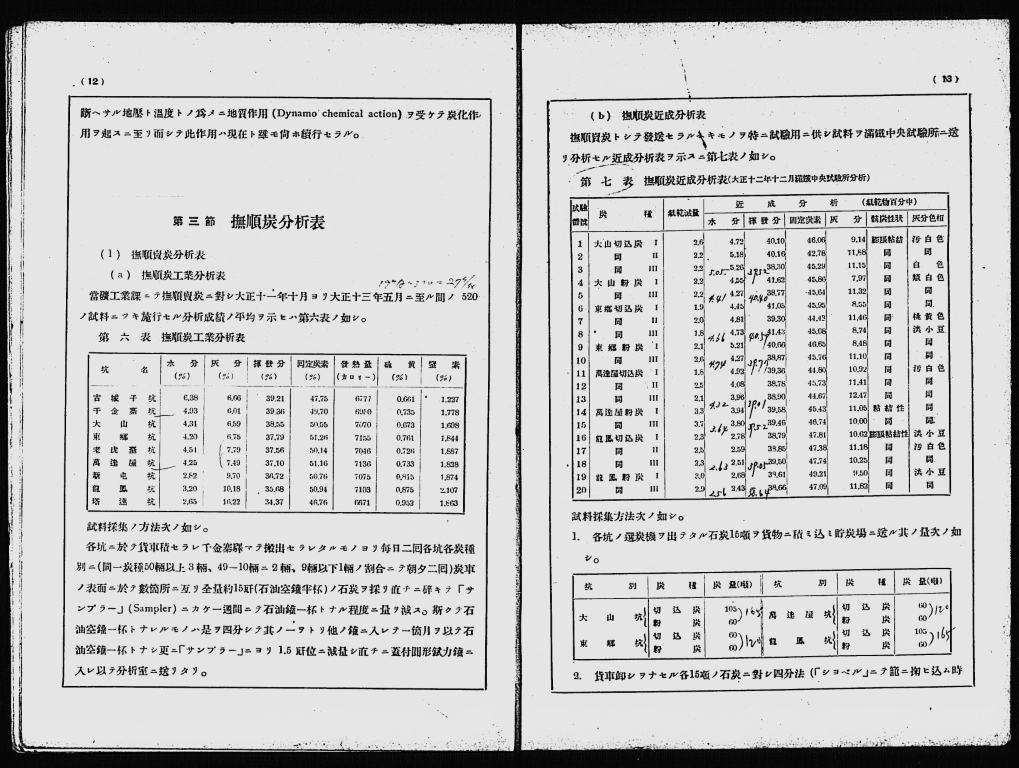 (12)
斷ヘサル地壓ト溫度トノ爲メニ地質作用 (Dynamo chemical action) ヲ受ケテ炭化作
用ヲ起スニ至リ而シテ此作用ハ現在ト雖モ尙ホ續行セラル。
第三節 撫順炭分析表
(1) 撫順賣炭分析表
(a) 撫順炭工業分析表
當礦工業課ニテ撫順賣炭ニ對シ大正十一年十月ヨリ大正十三年五月ニ至ル間ノ 520
ノ試料ニツキ施行セル分析成績ノ平均ヲ示セハ第六表ノ如シ。
第六表 撫順炭工業分析表
坑名 水分(%) 灰分(%) 揮發分(%) 固定炭素(%) 發熱量(カロリー) 硫黃(%) 窒素(%)
古城子坑 6,38 6,66 39,21 47,75 6777 0,661 1,227
千金寨坑 4,93 6,01 39,36 49,70 0,735 1,778
大山坑 4,31 6,59 38,55 50,55 7070 0,673 1,698
東鄕坑 4,20 6,75 37,79 51,26 7155 0,761 1,844
老虎臺坑 4,51 7,79 37,56 50,14 7046 0,726 1,887
萬達屋坑 4,25 7,49 37,10 51,16 7136 0,733 1,828
新屯坑 2,82 9,70 36,72 50,76 7075 0,815 1,874
龍鳳坑 3,20 10,18 35,68 50,94 7103 0,875 2,107
塔連坑 2,95 16,22 34,37 46,76 6671 0,952 1,863
試料採集ノ方法次ノ如シ。
各坑ニ於テ貨車積セラレ千金寨驛マテ搬出セラレタルモノヨリ每日二回各坑各炭種
別ニ(同一炭種50輛以上3輛、49—10輛ニ2輛、9輛以下1輛ノ割合ニテ朝夕二回)炭車
ノ表面ニ於テ數箇所ニ亙リ全量約15瓩(石油空鑵半杯)ノ石炭ヲ採リ直チニ碎キテ「サ
ンプラー」(Sampler) ニカケ一週間ニテ石油鑵一杯トナル程度ニ量ヲ減ス。斯クテ石
油空鑵一杯トナレルモノハ是ヲ四分シテ其ノ一ヲトリ他ノ鑵ニ入レテ一箇月ヲ以テ石
油空鑵一杯トナシ更ニ「サンプラー」ニヨリ 1.5 瓩位ニ減量シ直チニ蓋付圓形鉞力鑵ニ
入レ以テ分析室ニ送リタリ。
(13)
(b) 撫順炭近成分析表
撫順賣炭トシテ發送セラルヽキモノヲ特ニ試驗用ニ供シ試料ヲ滿鐵中央試驗所ニ送
リ分析セル近成分析表ヲ示スニ第七表ノ如シ。
第七表 撫順炭近成分析表(大正十二年十二月滿鐵中央試驗所分析)
試驗番號 炭種 氣乾減量 近成分析 (氣乾物百分中)
水分 揮發分 固定炭素 灰分 骸炭性狀 灰分色相
1 大山切込炭 I 2,6 4,72 40,10 46,06 9,14 膨脹粘結 汚白色
2 同 II 2,2 5,18 40,16 42,78 11,88 同 同
3 同 III 2,2 5,26 38,30 45,29 11,15 同 白色
4 大山粉炭 I 2,2 4,55 41,62 45,86 7,97 同 類白色
5 同 III 2,2 4,27 38,77 45,64 11,32 同 同
6 東鄕切込炭 I 1,9 4,45 41,05 45,95 8,55 同 同
7 同 II 2,0 4,81 39,30 44,43 11,46 同 桃黃色
8 同 III 1,8 4,73 41,43 45,08 8,74 同 淡小豆
9 東鄕粉炭 I 2,1 5,21 40,66 46,65 8,48 同 同
10 同 III 2,6 4,27 38,87 45,76 11,10 同 同
11 萬達屋切込炭 I 1,8 4,92 39,36 44,80 10,92 同 汚白色
12 同 II 2,5 4,08 38,78 45,73 11,41 同 同
13 同 III 2,1 3,96 38,90 44,67 12,47 同 同
14 萬達屋粉炭 I 3,3 3,94 39,58 45,43 11,05 粘結性 同
15 同 III 3,7 3,80 39,46 46,74 10,00 同 同
16 龍鳳切込炭 I 2,3 2,78 38,79 47,81 10,62 膨脹粘結性 淡小豆
17 同 II 2,5 2,59 38,85 47,38 11,18 同 汚白色
18 同 III 2,3 2,51 39,50 47,74 10,25 同 同
19 龍鳳粉炭 I 3,0 2,68 38,61 49,21 9,50 同 淡小豆
20 同 III 2,9 2,43 38,66 47,09 11,82 同 同
試料採集方法次ノ如シ。
1. 各坑ノ選炭機ヲ出テタル石炭15噸ヲ貨物ニ積ミ込ミ貯炭場ニ送ル其ノ量次ノ如
シ。
坑別 炭種 炭量(噸) 坑別 炭種 炭量(噸)
大山坑 切込炭 105 粉炭 60 165 萬達屋坑 切込炭 60 粉炭 60 120
東鄕坑 切込炭 60 粉炭 60 120 龍鳳坑 切込炭 105 粉炭 60 165
2. 貨車卸シヲナセル各15噸ノ石炭ニ對シ四分法 (「ショベル」ニテ籠ニ掬ヒ込ム時